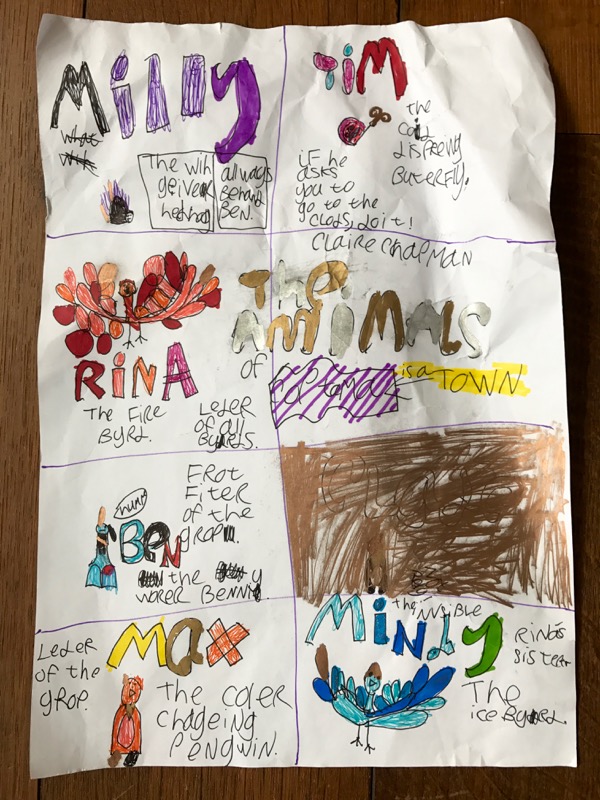 Milly
The Wih
geiveok
hedghog
allways
Behand
Ben.
TiM
the
disapeeing
ButerFly.
iF he
asks
you to
go to the
clods, do it!
CLaire chapMAN
RiNA
The Fire
Byrd.
LeDer
of all
Byrds.
The
ANiMALS
of
is a TOWN
hum
BeN
FroT
Fiter
of the
grop.
the
worer Benny
LeDer
of the
grop.
Max
the coler
chageing
Pengwin.
the invisible
MiNDy
RiNa's
sister
The
ice Byrd.